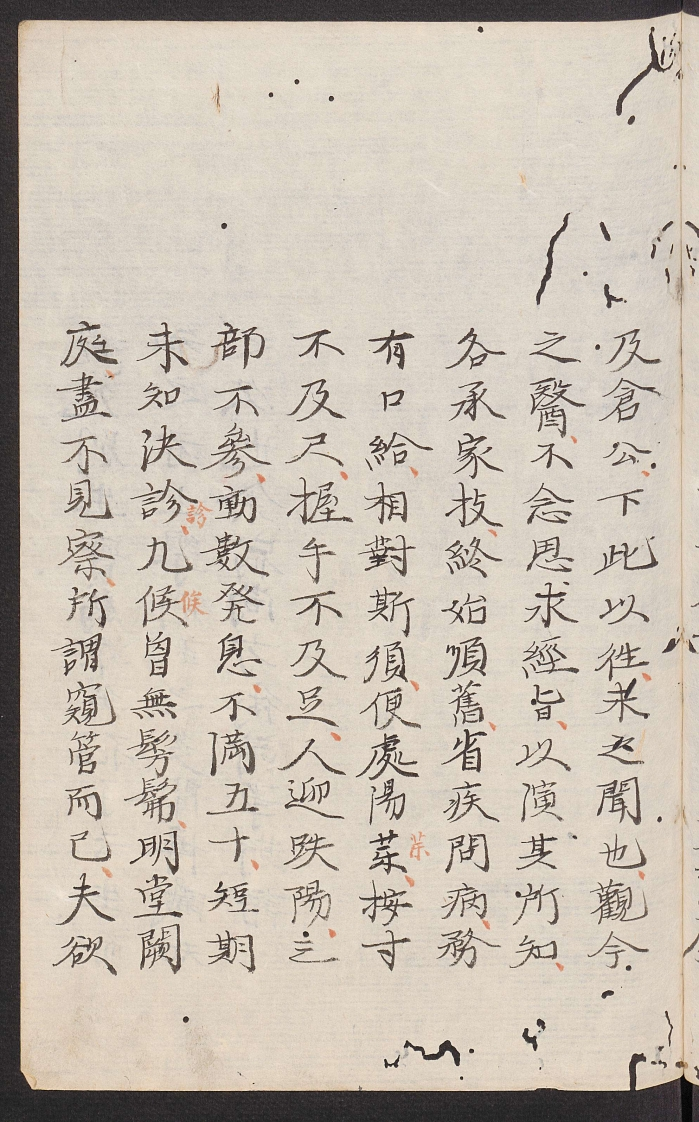 及倉公下此以徃未之聞也觀今
之醫不念思求經旨以演其所知
各承家技終始順舊省疾問病務
有口給相對斯須便處陽藥按寸
不及尺握手不及足人迎趺陽三
部不參動數発息不滿五十短期
未知決診九候曽無髣髴明堂闕
庭盡不見察所謂窺管而已夫欲